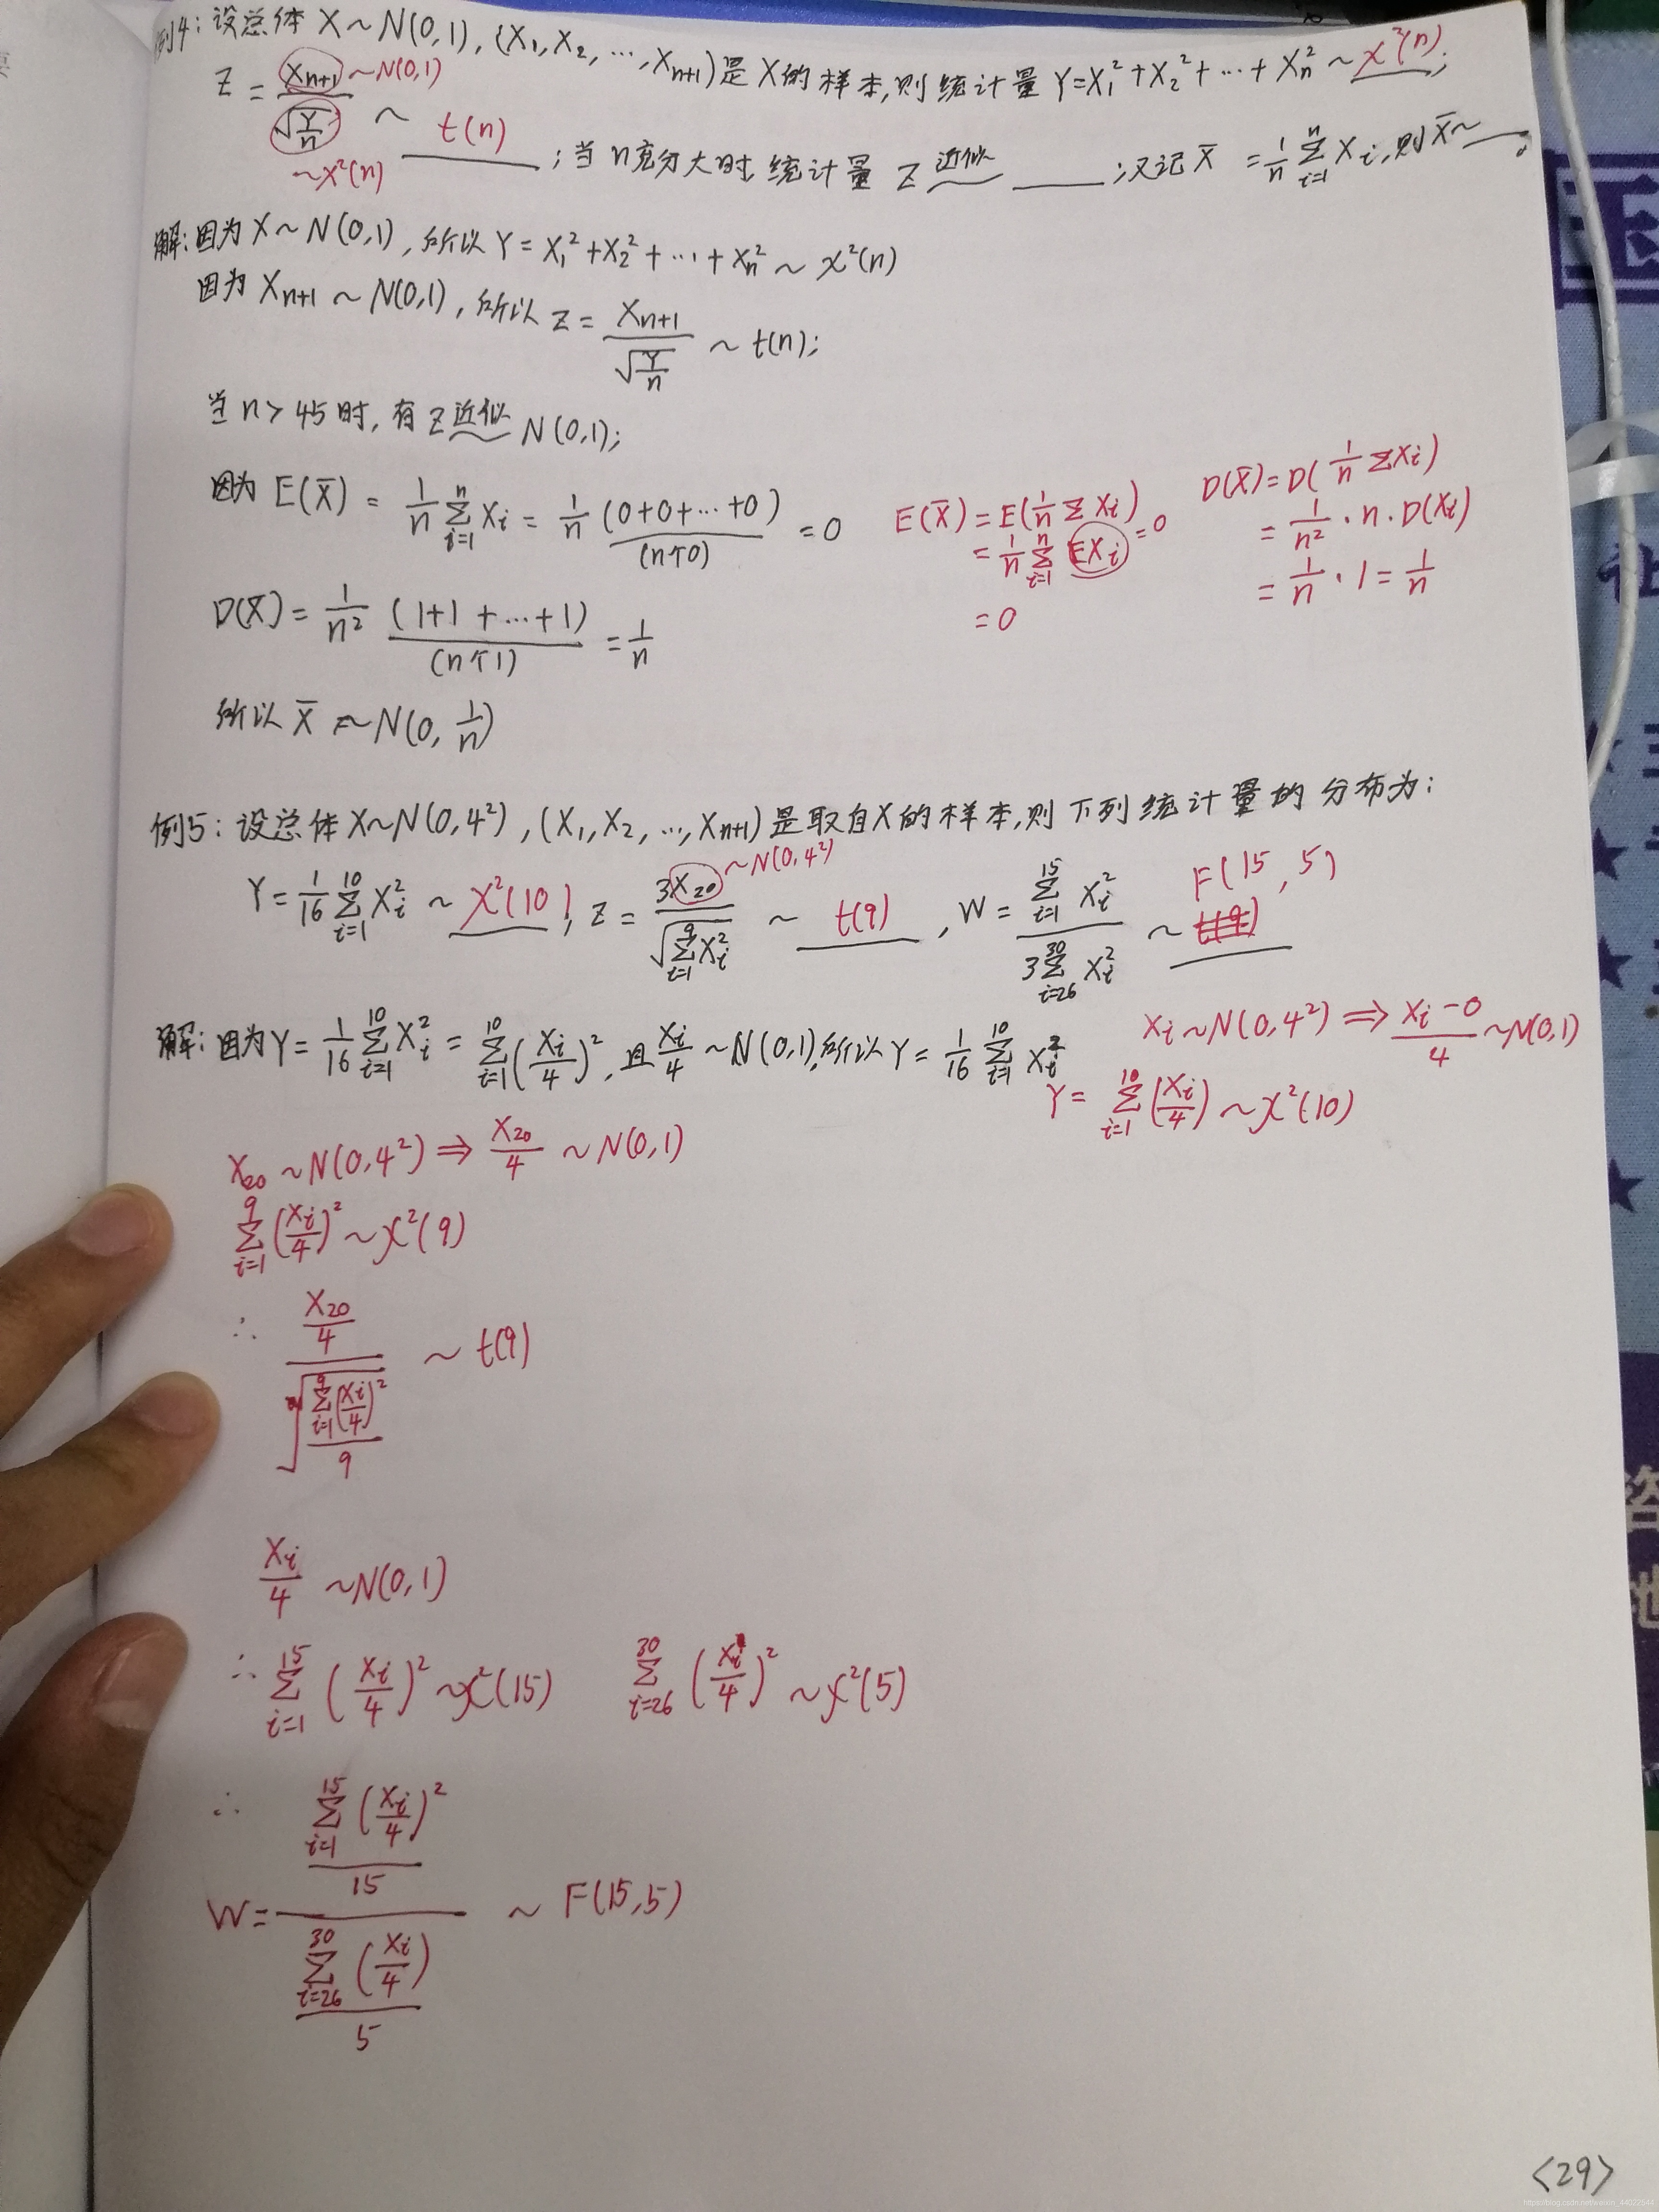 例4：设总体 X~N(0,1), (X₁,X₂,…,Xₙ₊₁)是X的样本,则统计量 Y=X₁²+X₂²+…+Xₙ² ~ χ²(n);
Z = Xₙ₊₁ / √(Y/n) ~ t(n) ; 当n充分大时,统计量 Z 近似~ ____ ;又记 X̄ = 1/n Σᵢ₌₁ⁿ Xᵢ,则 X̄~ ____。
~N(0,1)
~χ²(n)
解:因为 X~N(0,1), 所以 Y = X₁²+X₂²+…+Xₙ² ~ χ²(n)
因为 Xₙ₊₁ ~ N(0,1), 所以 Z = Xₙ₊₁ / √(Y/n) ~ t(n);
当 n>45时, 有 Z 近似~ N(0,1);
因为 E(X̄) = 1/n Σᵢ₌₁ⁿ Xᵢ = 1/n (0+0+…+0) = 0
(n个0)
E(X̄) = E(1/n Σ Xᵢ)
= 1/n Σᵢ₌₁ⁿ EXᵢ =0
= 0
D(X̄) = D(1/n ΣXᵢ)
= 1/n² · n · D(Xᵢ)
= 1/n · 1 = 1/n
D(X̄) = 1/n² (1+1+…+1) = 1/n
(n个1)
所以 X̄ ~ N(0, 1/n)
例5: 设总体 X~N(0,4²), (X₁,X₂,…,Xₙ₊₁)是取自X的样本,则下列统计量的分布为:
Y = 1/16 Σᵢ₌₁¹⁰ Xᵢ² ~ χ²(10), Z = 3X₂₀ / √(Σᵢ₌₁⁹ Xᵢ²) ~ t(9), W = Σᵢ₌₁¹⁵ Xᵢ² / 3Σᵢ₌₂₆³⁰ Xᵢ² ~ F(15,5)
~N(0,4²)
解:因为Y = 1/16 Σᵢ₌₁¹⁰ Xᵢ² = Σᵢ₌₁¹⁰ (Xᵢ/4)², 且 Xᵢ/4 ~ N(0,1),所以 Y = 1/16 Σᵢ₌₁¹⁰ Xᵢ²
Xᵢ~N(0,4²) ⇒ (Xᵢ-0)/4 ~N(0,1)
Y = Σᵢ₌₁¹⁰ (Xᵢ/4) ~ χ²(10)
X₂₀ ~ N(0,4²) ⇒ X₂₀/4 ~ N(0,1)
Σᵢ₌₁⁹ (Xᵢ/4)² ~ χ²(9)
∴ (X₂₀/4) / √(Σᵢ₌₁⁹ (Xᵢ/4)² / 9) ~ t(9)
Xᵢ/4 ~N(0,1)
∴ Σᵢ₌₁¹⁵ (Xᵢ/4)² ~χ²(15) Σᵢ₌₂₆³⁰ (Xᵢ/4)² ~χ²(5)
∴ W = (Σᵢ₌₁¹⁵ (Xᵢ/4)² / 15) / (Σᵢ₌₂₆³⁰ (Xᵢ/4) / 5) ~ F(15,5)
<29>